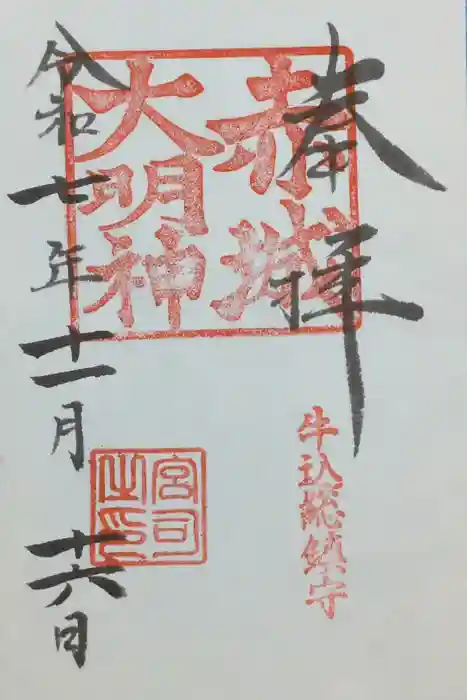 奉拝
牛込総鎮守
赤城
大明神
宮司
之印
令和七年十一月十六日